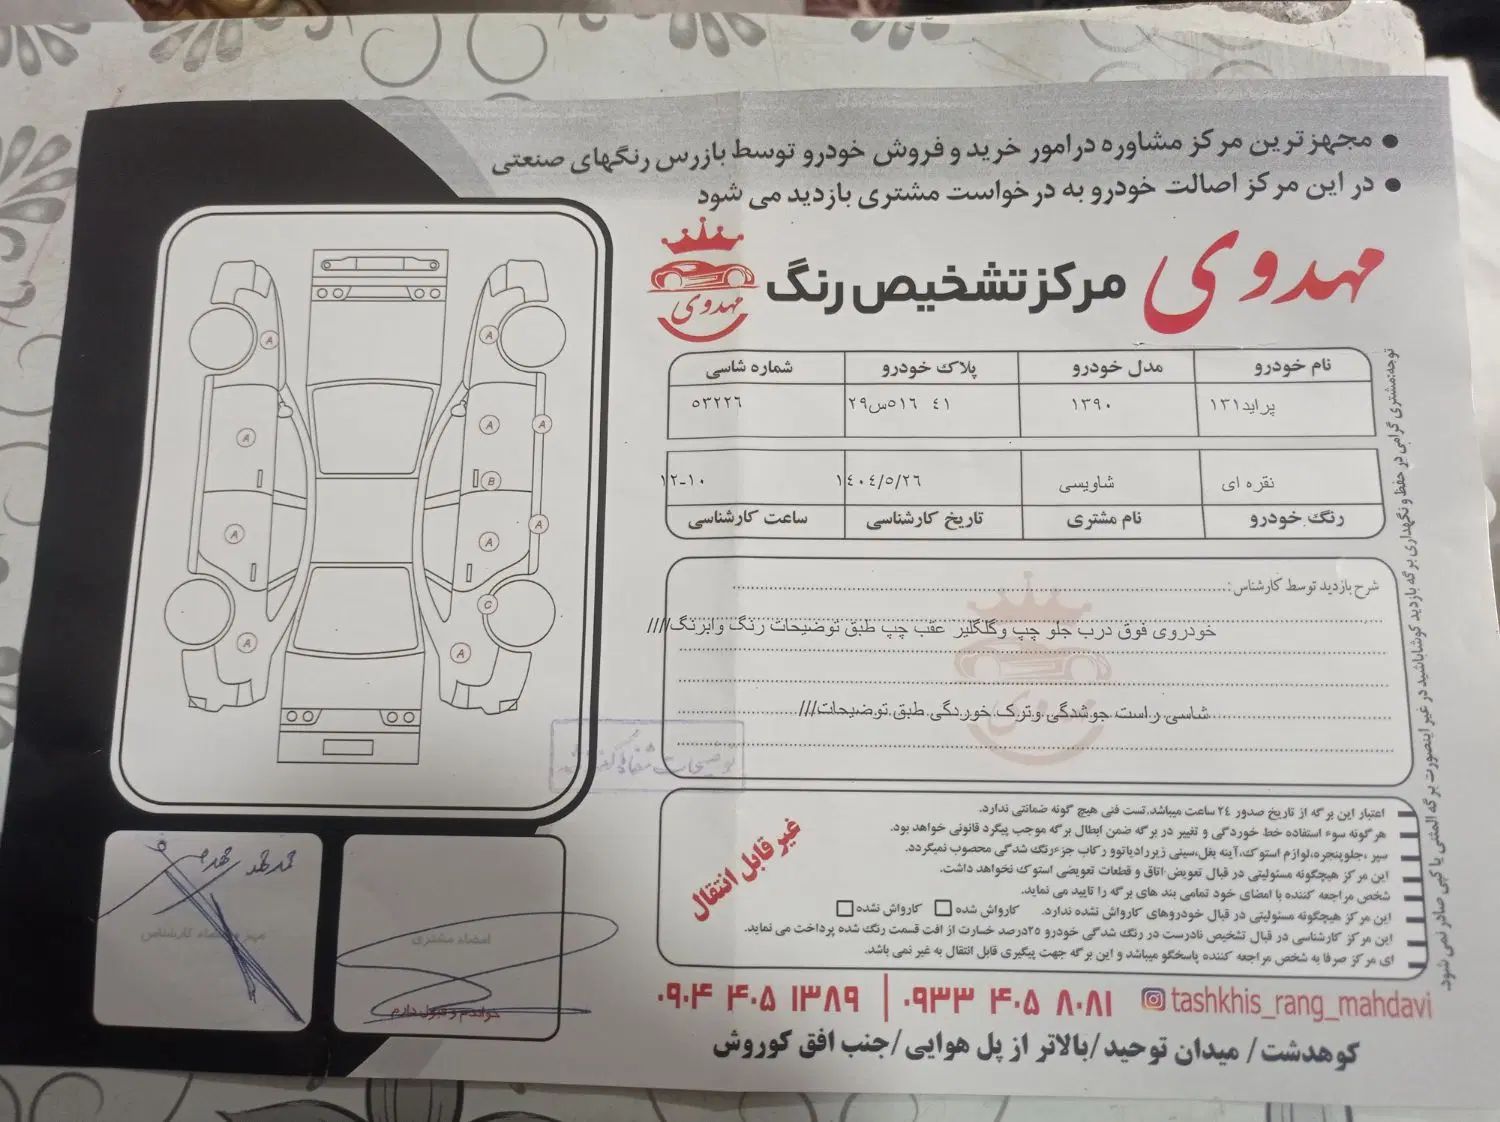 ● مجهزترین مرکز مشاوره درامور خرید و فروش خودرو توسط بازرس رنگهای صنعتی
● در این مرکز اصالت خودرو به درخواست مشتری بازدید می شود
مهدوی
مرکز تشخیص رنگ
مهدوی
نام خودرو مدل خودرو پلاک خودرو شماره شاسی
پراید۱۳۱ ۱۳۹۰ ۴۱ ۵۱۶س۲۹ ۵۳۲۲۶
نقره ای شاویسی ۱۴۰۴/۵/۲۶ ۱۲-۱۰
رنگ خودرو نام مشتری تاریخ کارشناسی ساعت کارشناسی
شرح بازدید توسط کارشناس:
خودروی فوق درب جلو چپ وگلگلیر عقب چپ طبق توضیحات رنگ وابرنگ////
شاسی راست جوشدگی وترک خوردگی طبق توضیحات///
A A
A A A
B
A A A
C
A A
اعتبار این برگه از تاریخ صدور ۲۴ ساعت میباشد.تست فنی هیچ گونه ضمانتی ندارد.
هرگونه سوء استفاده خط خوردگی و تغییر در برگه ضمن ابطال برگه موجب پیگرد قانونی خواهد بود.
سپر ،جلوپنجره،لوازم استوک،آینه بغل،سینی زیررادیاتوو رکاب جزءرنگ شدگی محصوب نمیگردد.
این مرکز هیچگونه مسئولیتی در قبال تعویض اتاق و قطعات تعویضی استوک نخواهد داشت.
شخص مراجعه کننده با امضای خود تمامی بند های برگه را تایید می نماید.
این مرکز هیچگونه مسئولیتی در قبال خودروهای کارواش نشده ندارد. کارواش شده کارواش نشده
این مرکز کارشناسی در قبال تشخیص نادرست در رنگ شدگی خودرو ۲۵درصد خسارت از افت قسمت رنگ شده پرداخت می نماید.
ای مرکز صرفا به شخص مراجعه کننده پاسخگو میباشد و این برگه جهت پیگیری قابل انتقال به غیر نمی باشد.
غیر قابل انتقال
توجه:مشتری گرامی در حفظ و نگهداری برگه بازدید کوشاباشید در غیر اینصورت برگه المثنی یا کپی صادر نمی شود.
مهر و امضاء کارشناس
امضاء مشتری
خواندم و قبول دارم
۰۹۰۴ ۴۰۵ ۱۳۸۹ | ۰۹۳۳ ۴۰۵ ۸۰۸۱ tashkhis_rang_mahdavi
کوهدشت/ میدان توحید /بالاتر از پل هوایی /جنب افق کوروش